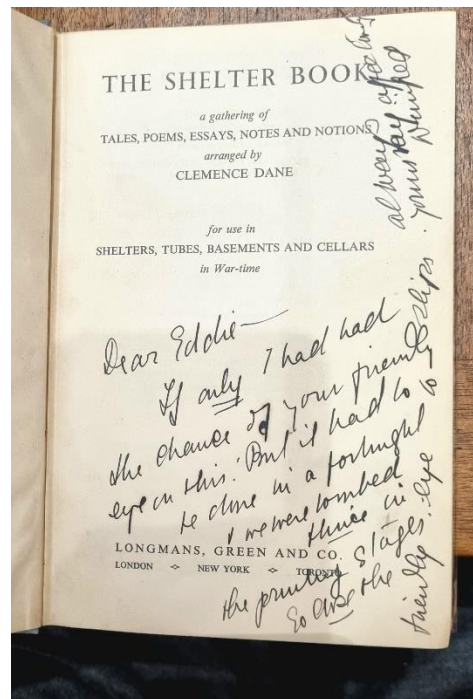 THE SHELTER BOOK
a gathering of
TALES, POEMS, ESSAYS, NOTES AND NOTIONS
arranged by
CLEMENCE DANE
for use in
SHELTERS, TUBES, BASEMENTS AND CELLARS
in War-time
Dear Eddie —
If only I had had
the chance of your friendly
eye on this. But it had to
be done in a fortnight
& we were bombed
thrice in
the printing stages.
So the
friendly eye to
slips.
always affectionately
yours Winifred
LONGMANS, GREEN AND CO.
LONDON NEW YORK TORONTO